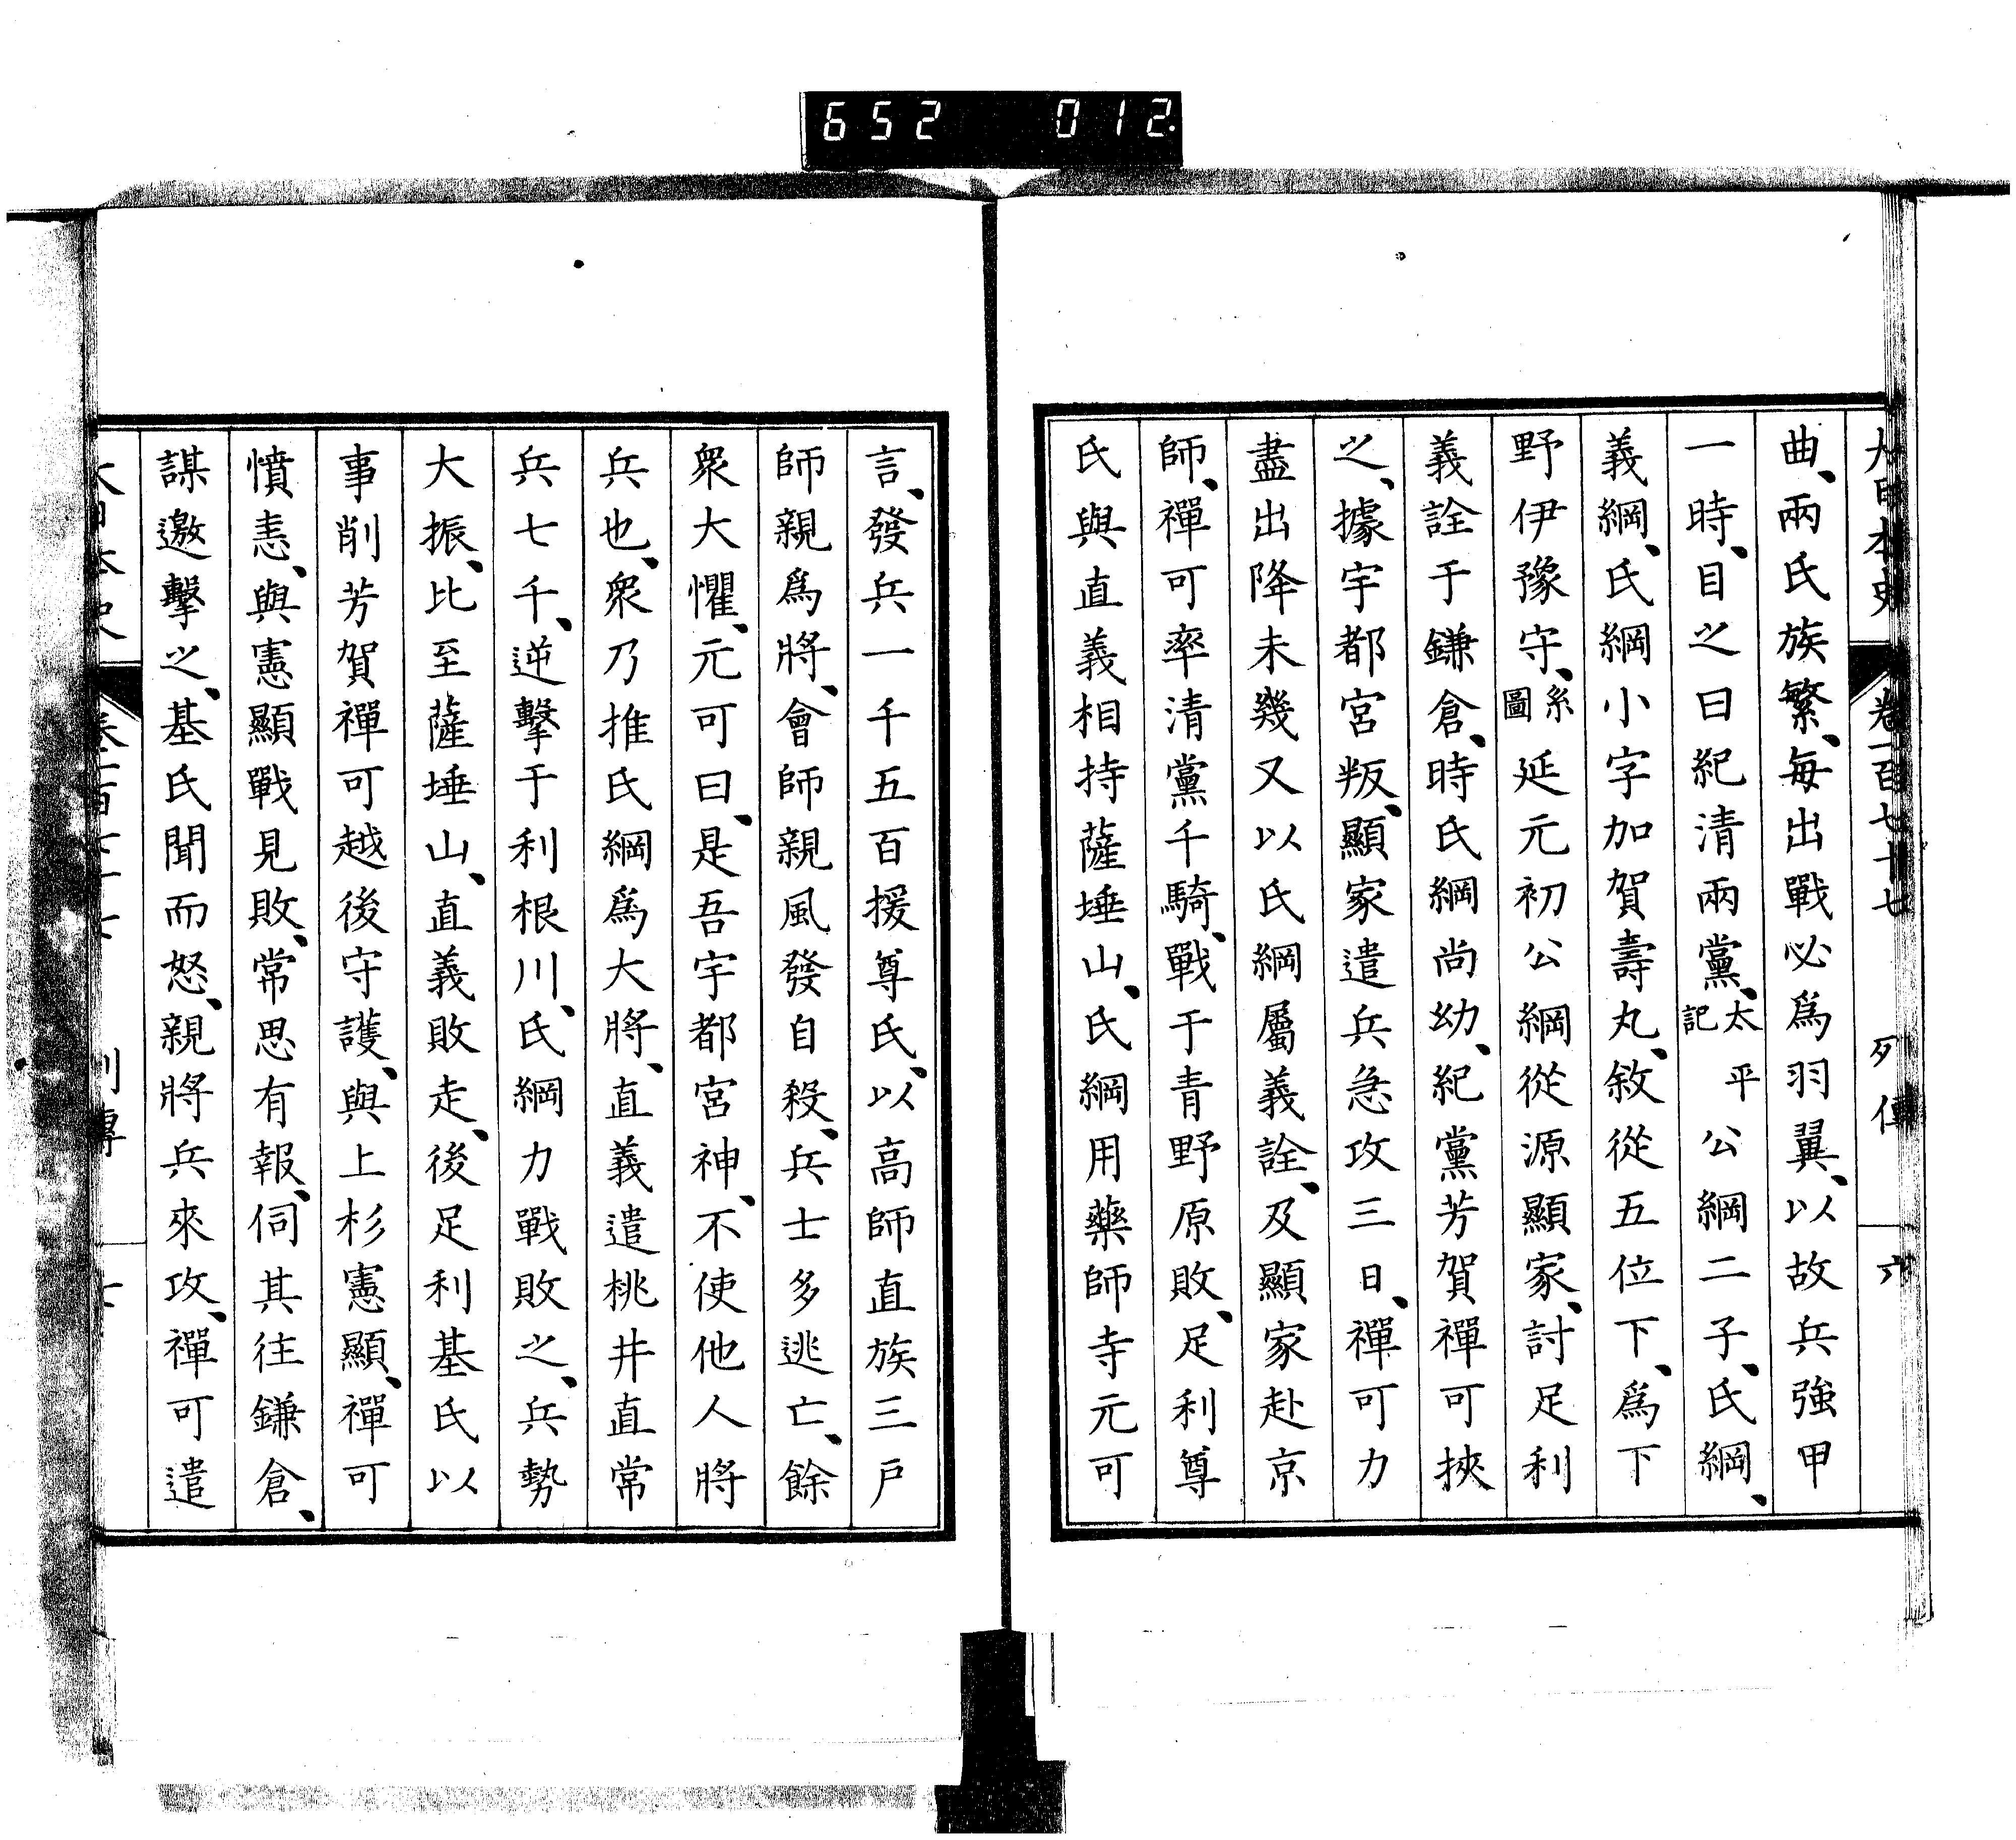 652 012
大日本史 卷一百七十七 列傳 六
曲、兩氏族繁、每出戰必爲羽翼、以故兵強甲
一時、目之曰紀清兩黨、太平記公綱二子、氏綱、
義綱、氏綱小字加賀壽丸、敘從五位下、爲下
野伊豫守、系圖延元初公綱從源顯家、討足利
義詮于鎌倉、時氏綱尚幼、紀黨芳賀禪可挾
之、據宇都宮叛、顯家遣兵急攻三日、禪可力
盡出降未幾又以氏綱屬義詮、及顯家赴京
師、禪可率清黨千騎、戰于青野原敗、足利尊
氏與直義相持薩埵山、氏綱用藥師寺元可
言、發兵一千五百援尊氏、以高師直族三戶
師親爲將、會師親風發自殺、兵士多逃亡、餘
衆大懼、元可曰、是吾宇都宮神、不使他人將
兵也、衆乃推氏綱爲大將、直義遣桃井直常
兵七千、逆擊于利根川、氏綱力戰敗之、兵勢
大振、比至薩埵山、直義敗走、後足利基氏以
事削芳賀禪可越後守護、與上杉憲顯、禪可
憤恚、與憲顯戰見敗、常思有報、伺其往鎌倉、
謀邀擊之、基氏聞而怒、親將兵來攻、禪可遣